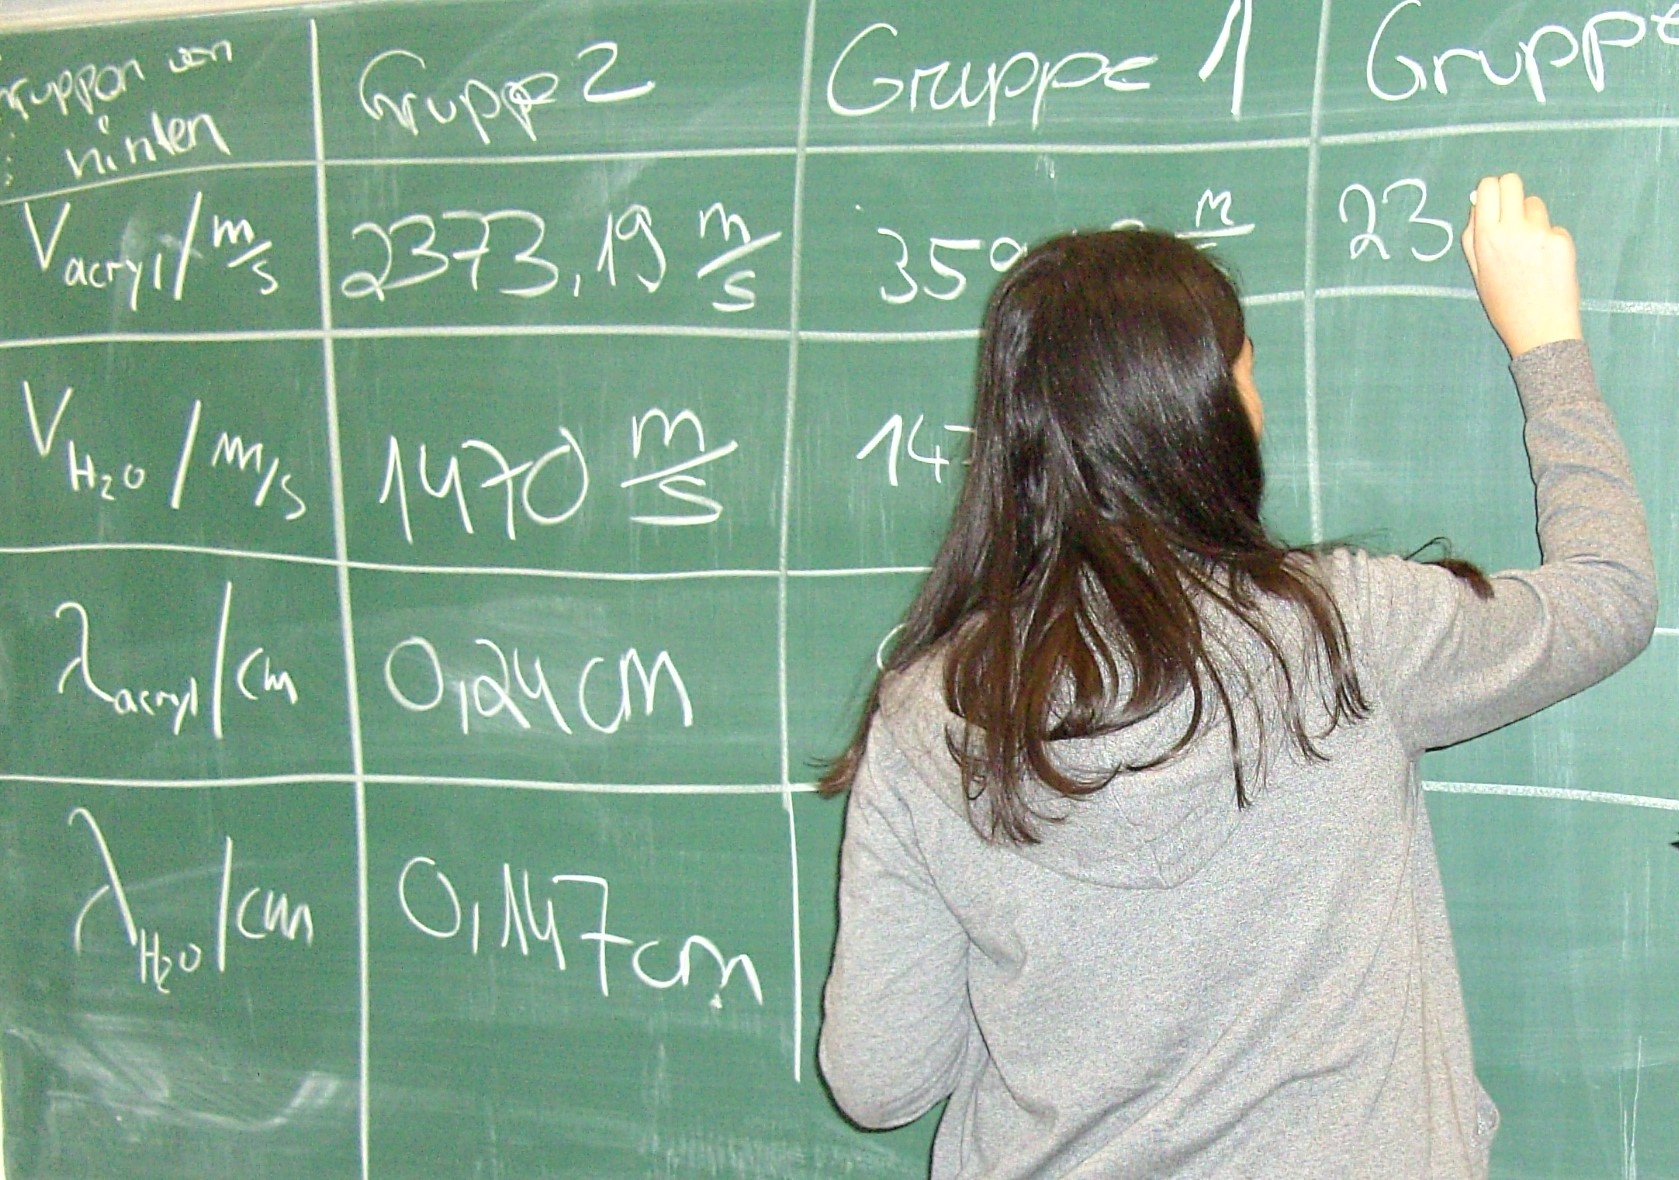 Gruppen von Gruppe 2 Gruppe 1 Gruppe
hinten
V acryl / m/s 2373,19 m/s 359 m 23
V H₂O / m/s 1470 m/s 147
λ acryl / cm 0,24 cm
λ H₂O / cm 0,147 cm